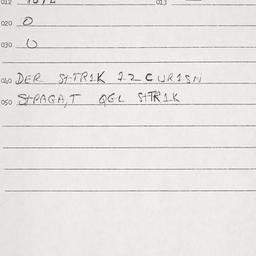 012
013
020 0
030 0
040 DER St-TR1K 22 CUR1SN
050 St-PAGA,T QGL St-TR1K